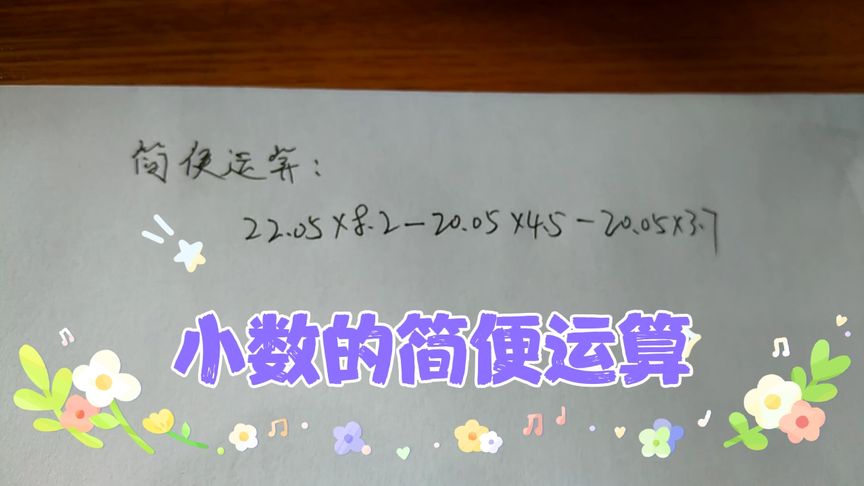 简便运算：
22.05×8.2-20.05×4.5-20.05×3.7
小数的简便运算